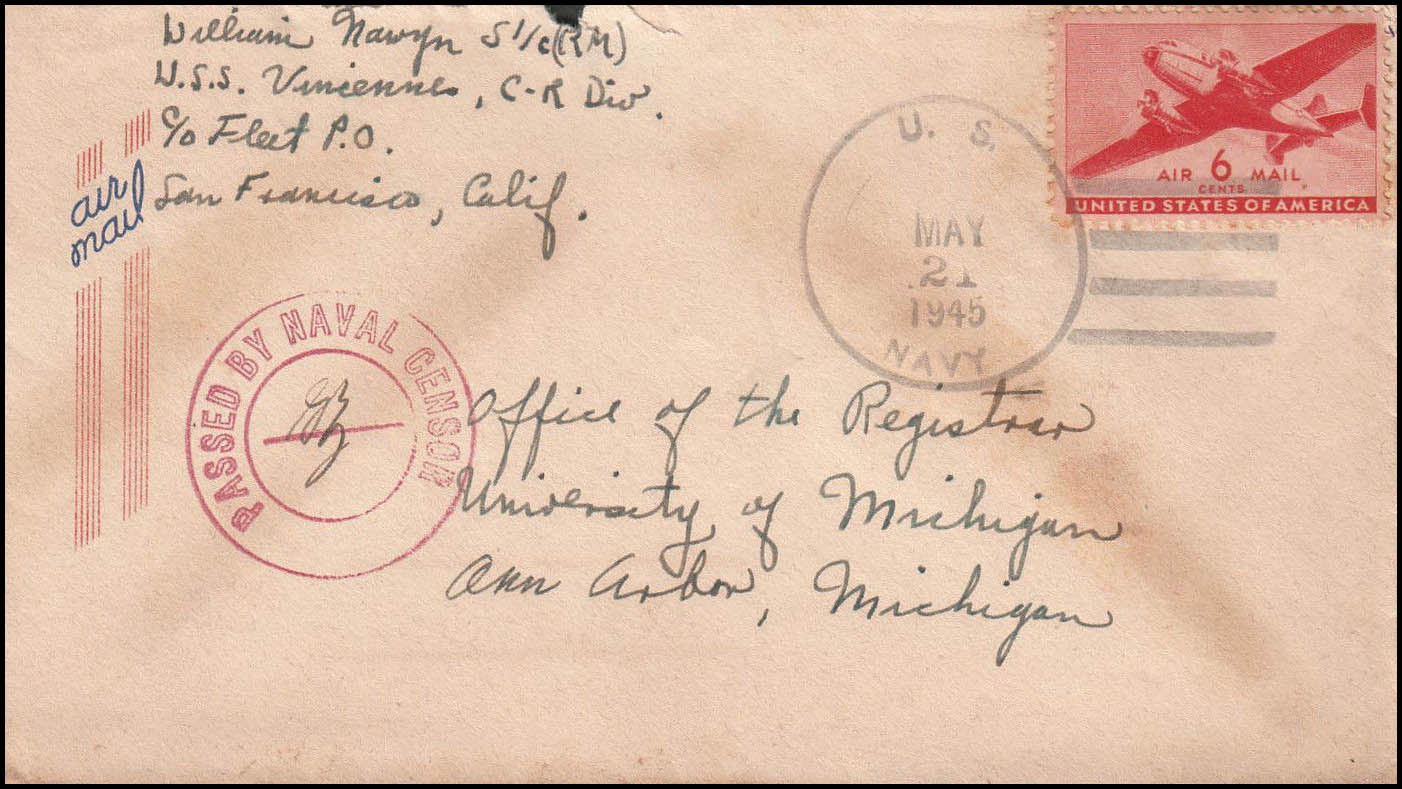 William Nawyn S1/c(RM)
U.S.S. Vincennes, C-R Div.
c/o Fleet P.O.
San Francisco, Calif.
air
mail
AIR 6 MAIL
CENTS
UNITED STATES OF AMERICA
U. S.
MAY
21
1945
NAVY
PASSED BY NAVAL CENSOR
Office of the Registrar
University of Michigan
Ann Arbor, Michigan